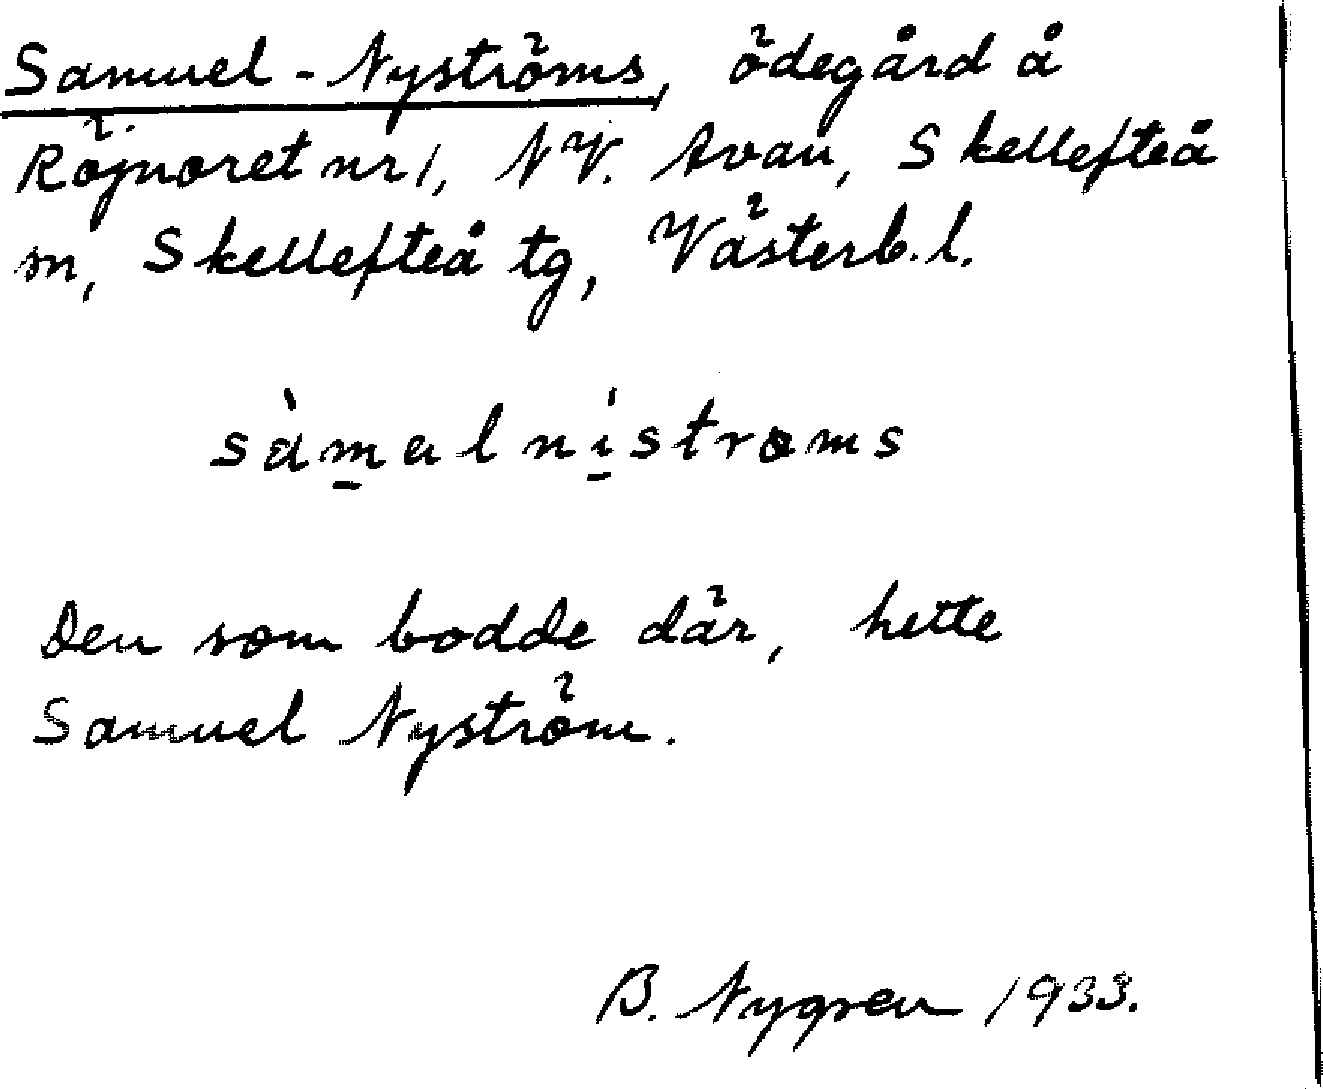 Samuel-Nyströms, ödegård å
Röjnoret nr 1, NV. Avan, Skellefteå
m, Skellefteå tg, Västerb. l.
sàmalnístroms
Den som bodde där, hette
Samuel Nyström.
B. Nygren 1933.